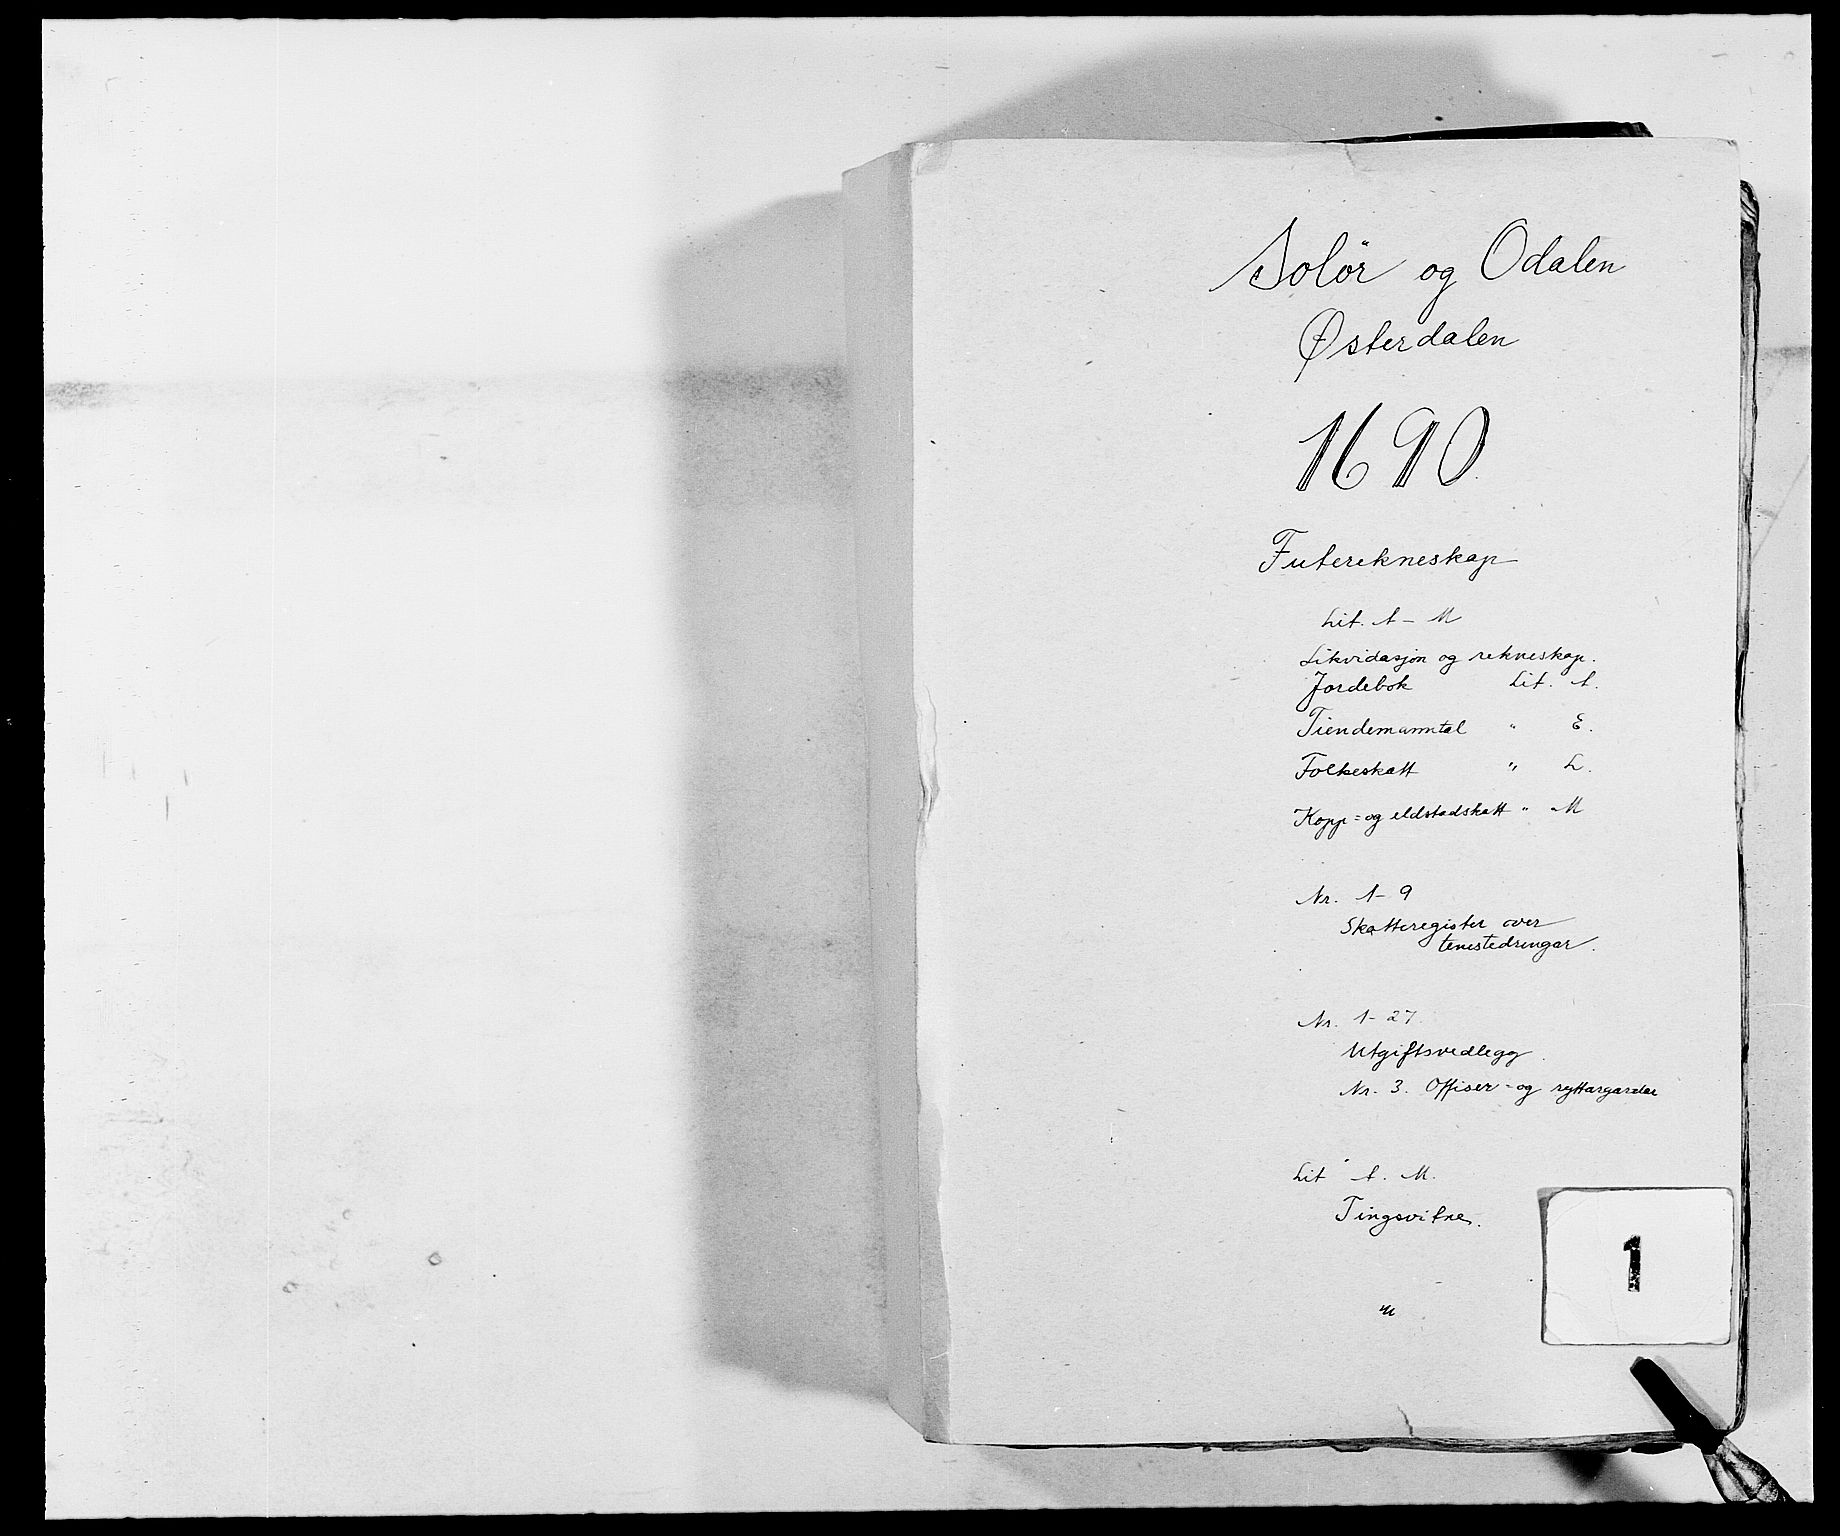 Solör og Odalen
Østerdalen
1690
Futerekneskap
Lit. A - M
Likvidasjon og rekneskap.
Jordebok Lit. A.
Tiendemanntal " E.
Folkeskatt " L.
Kopp- og eldstadskatt " M
Nr. 1 - 9
Skatteregister over
tenestedrengar.
Nr. 1 - 27.
Utgiftsvedlegg.
Nr. 3. Offiser- og ryttargardar
Lit A. M.
Tingsvitne.
1